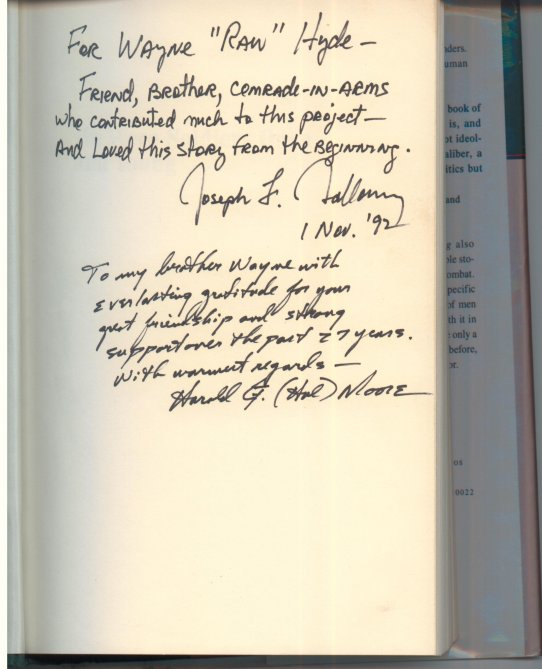 For Wayne "Raw" Hyde –
Friend, Brother, Comrade-in-Arms
who contributed much to this project –
And Loved this story from the Beginning.
Joseph L. Galloway
1 Nov. '92
To my brother Wayne with
everlasting gratitude for your
great friendship and strong
support over the past 27 years.
With warmest regards –
Harold G. (Hal) Moore
aders.
uman
book of
is, and
ot ideol-
aliber, a
itics but
and
g also
ple sto-
ombat.
pecific
of men
th it in
only a
before,
or.
os
0022